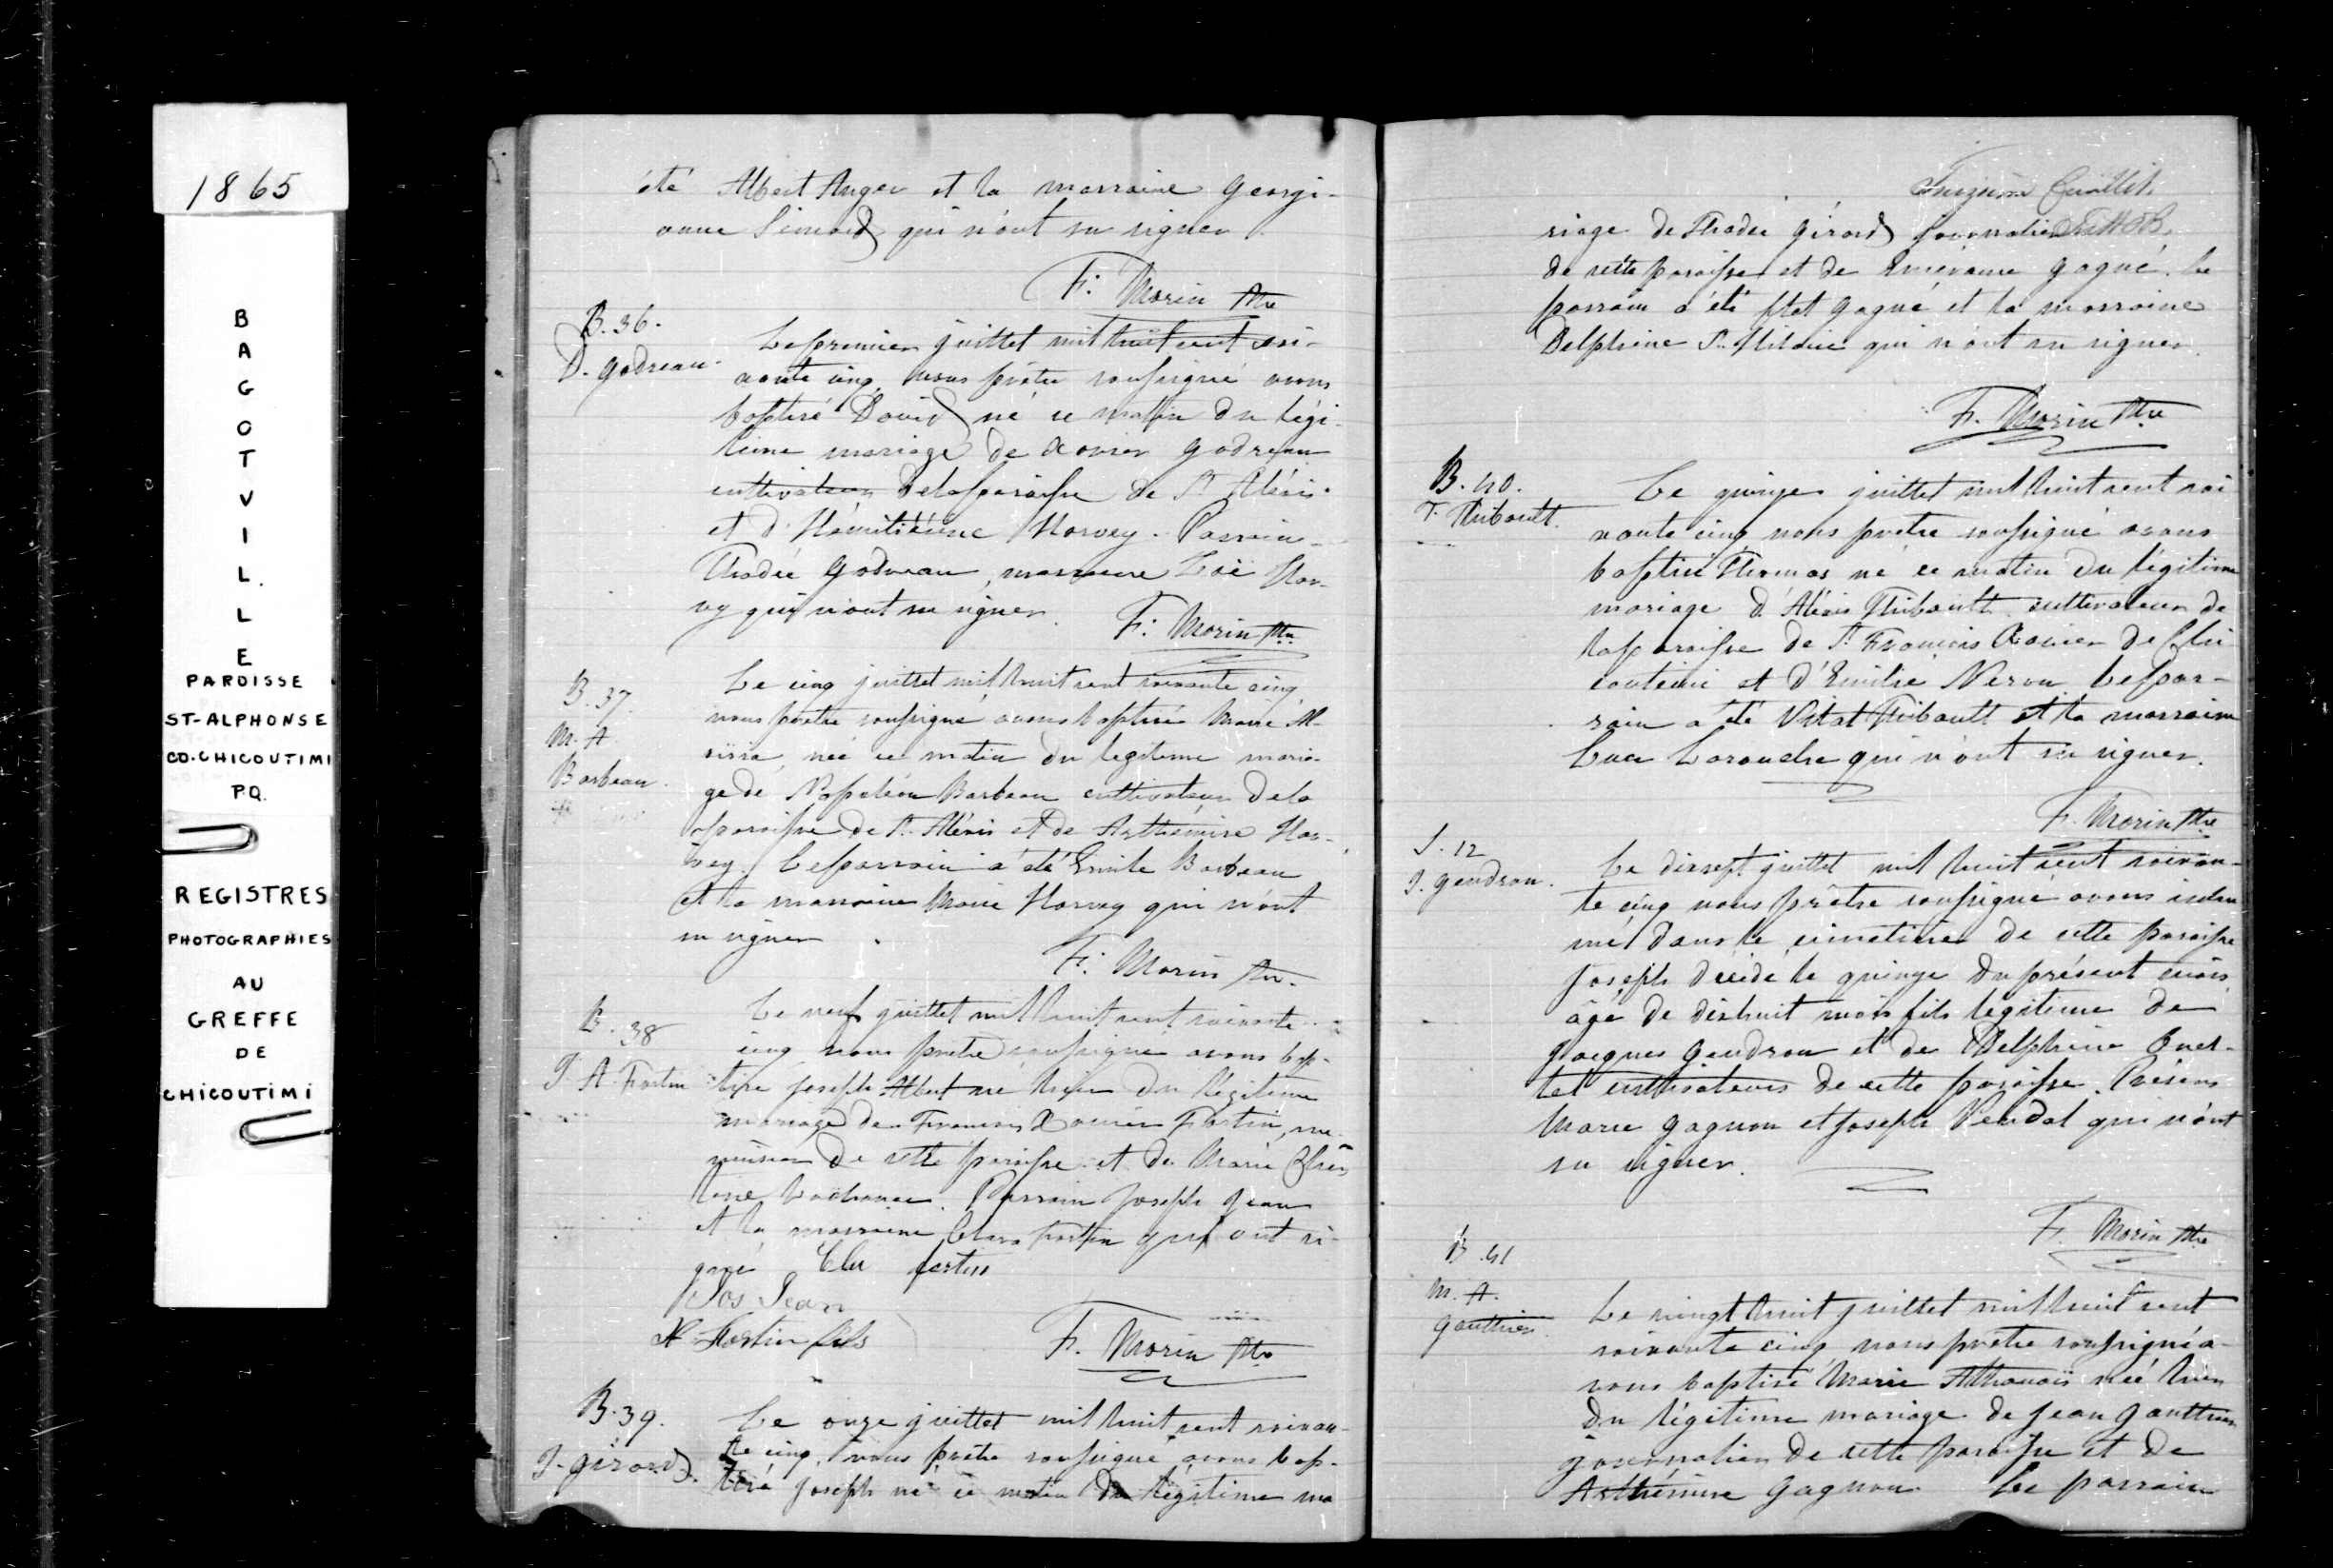 1865
BAGOTVILLE
PAROISSE
ST-ALPHONSE
CO. CHICOUTIMI
P.Q.
REGISTRES
PHOTOGRAPHIES
AU
GREFFE
DE
CHICOUTIMI
été Albert Anger et la marraine Georgi-
anne Simard qui n'ont su signer.
F. Morin Ptre
B. 36.
D. Godreau.
Le premier juillet mil huit cent soi-
xante cinq, nous prêtre soussigné avons
baptisé David né ce matin du légi-
time mariage de Xavier Godreau
cultivateur de la paroisse de St Alexis
et d' Harvey. Parrain
Thadée Godreau, marraine Zoé Har-
vey qui n'ont su signer.
F. Morin Ptre
B. 37.
M. A.
Barbeau.
Le cinq juillet mil huit cent soixante cinq
nous prêtre soussigné avons baptisé Marie Al-
née ce matin du légitime maria-
ge de Napoléon Barbeau cultivateur de la
paroisse de St. Alexis et de Arthémise Har-
vey. Le parrain a été Emile Barbeau
et la marraine Marie Harvey qui n'ont
su signer.
F. Morin Ptre.
B. 38
J. A. Fortin
Le neuf juillet mil huit cent soixante
cinq nous prêtre soussigné avons bap-
tisé Joseph Albert né hier du légitime
mariage de François Xavier Fortin, me-
nuisier de cette paroisse et de Marie
Parrain Joseph Jean
et la marraine Clara Fortin qui ont si-
gné Fortin
Jos Jean
Fortin fils
F. Morin Ptre
B. 39.
J. Girard.
Le onze juillet mil huit cent soixan-
te cinq, nous prêtre soussigné avons bap-
tisé Joseph né ce matin du légitime ma
riage de Thadée Girard journalier
de cette paroisse et de Gagné. Le
parrain a été Gagné et la marraine
Delphine St. Hilaire qui n'ont su signer.
F. Morin Ptre
B. 40.
T. Thibault.
Le quinze juillet mil huit cent soi
xante cinq nous prêtre soussigné avons
baptisé Thomas né ce matin du légitime
mariage d'Alexis Thibault cultivateur de
la paroisse de St. François Xavier de Chi
coutimi et d'Emilie Neron Le par-
rain a été Vital Thibault et la marraine
Luce Larouche qui n'ont su signer.
F. Morin Ptre
S. 12
J. Gendron.
Le dixsept juillet mil huit cent soixan-
te cinq nous prêtre soussigné avons inhu
mé dans le cimetière de cette paroisse
Joseph décédé le quinze du présent mois
âgé de dixhuit mois fils légitime de
Jacques Gendron et de Delphine Ouel-
let cultivateurs de cette paroisse. Présens
Marie Gagnon et Joseph qui n'ont
su signer.
F. Morin Ptre
B. 41
M. A.
Gauthier.
Le vingt huit juillet mil huit cent
soixante cinq nous prêtre soussigné a-
vons baptisé Marie Athanaïs née hier
du légitime mariage de Jean Gauthier
journalier de cette paroisse et de
Arthémise Gagnon. Le parrain